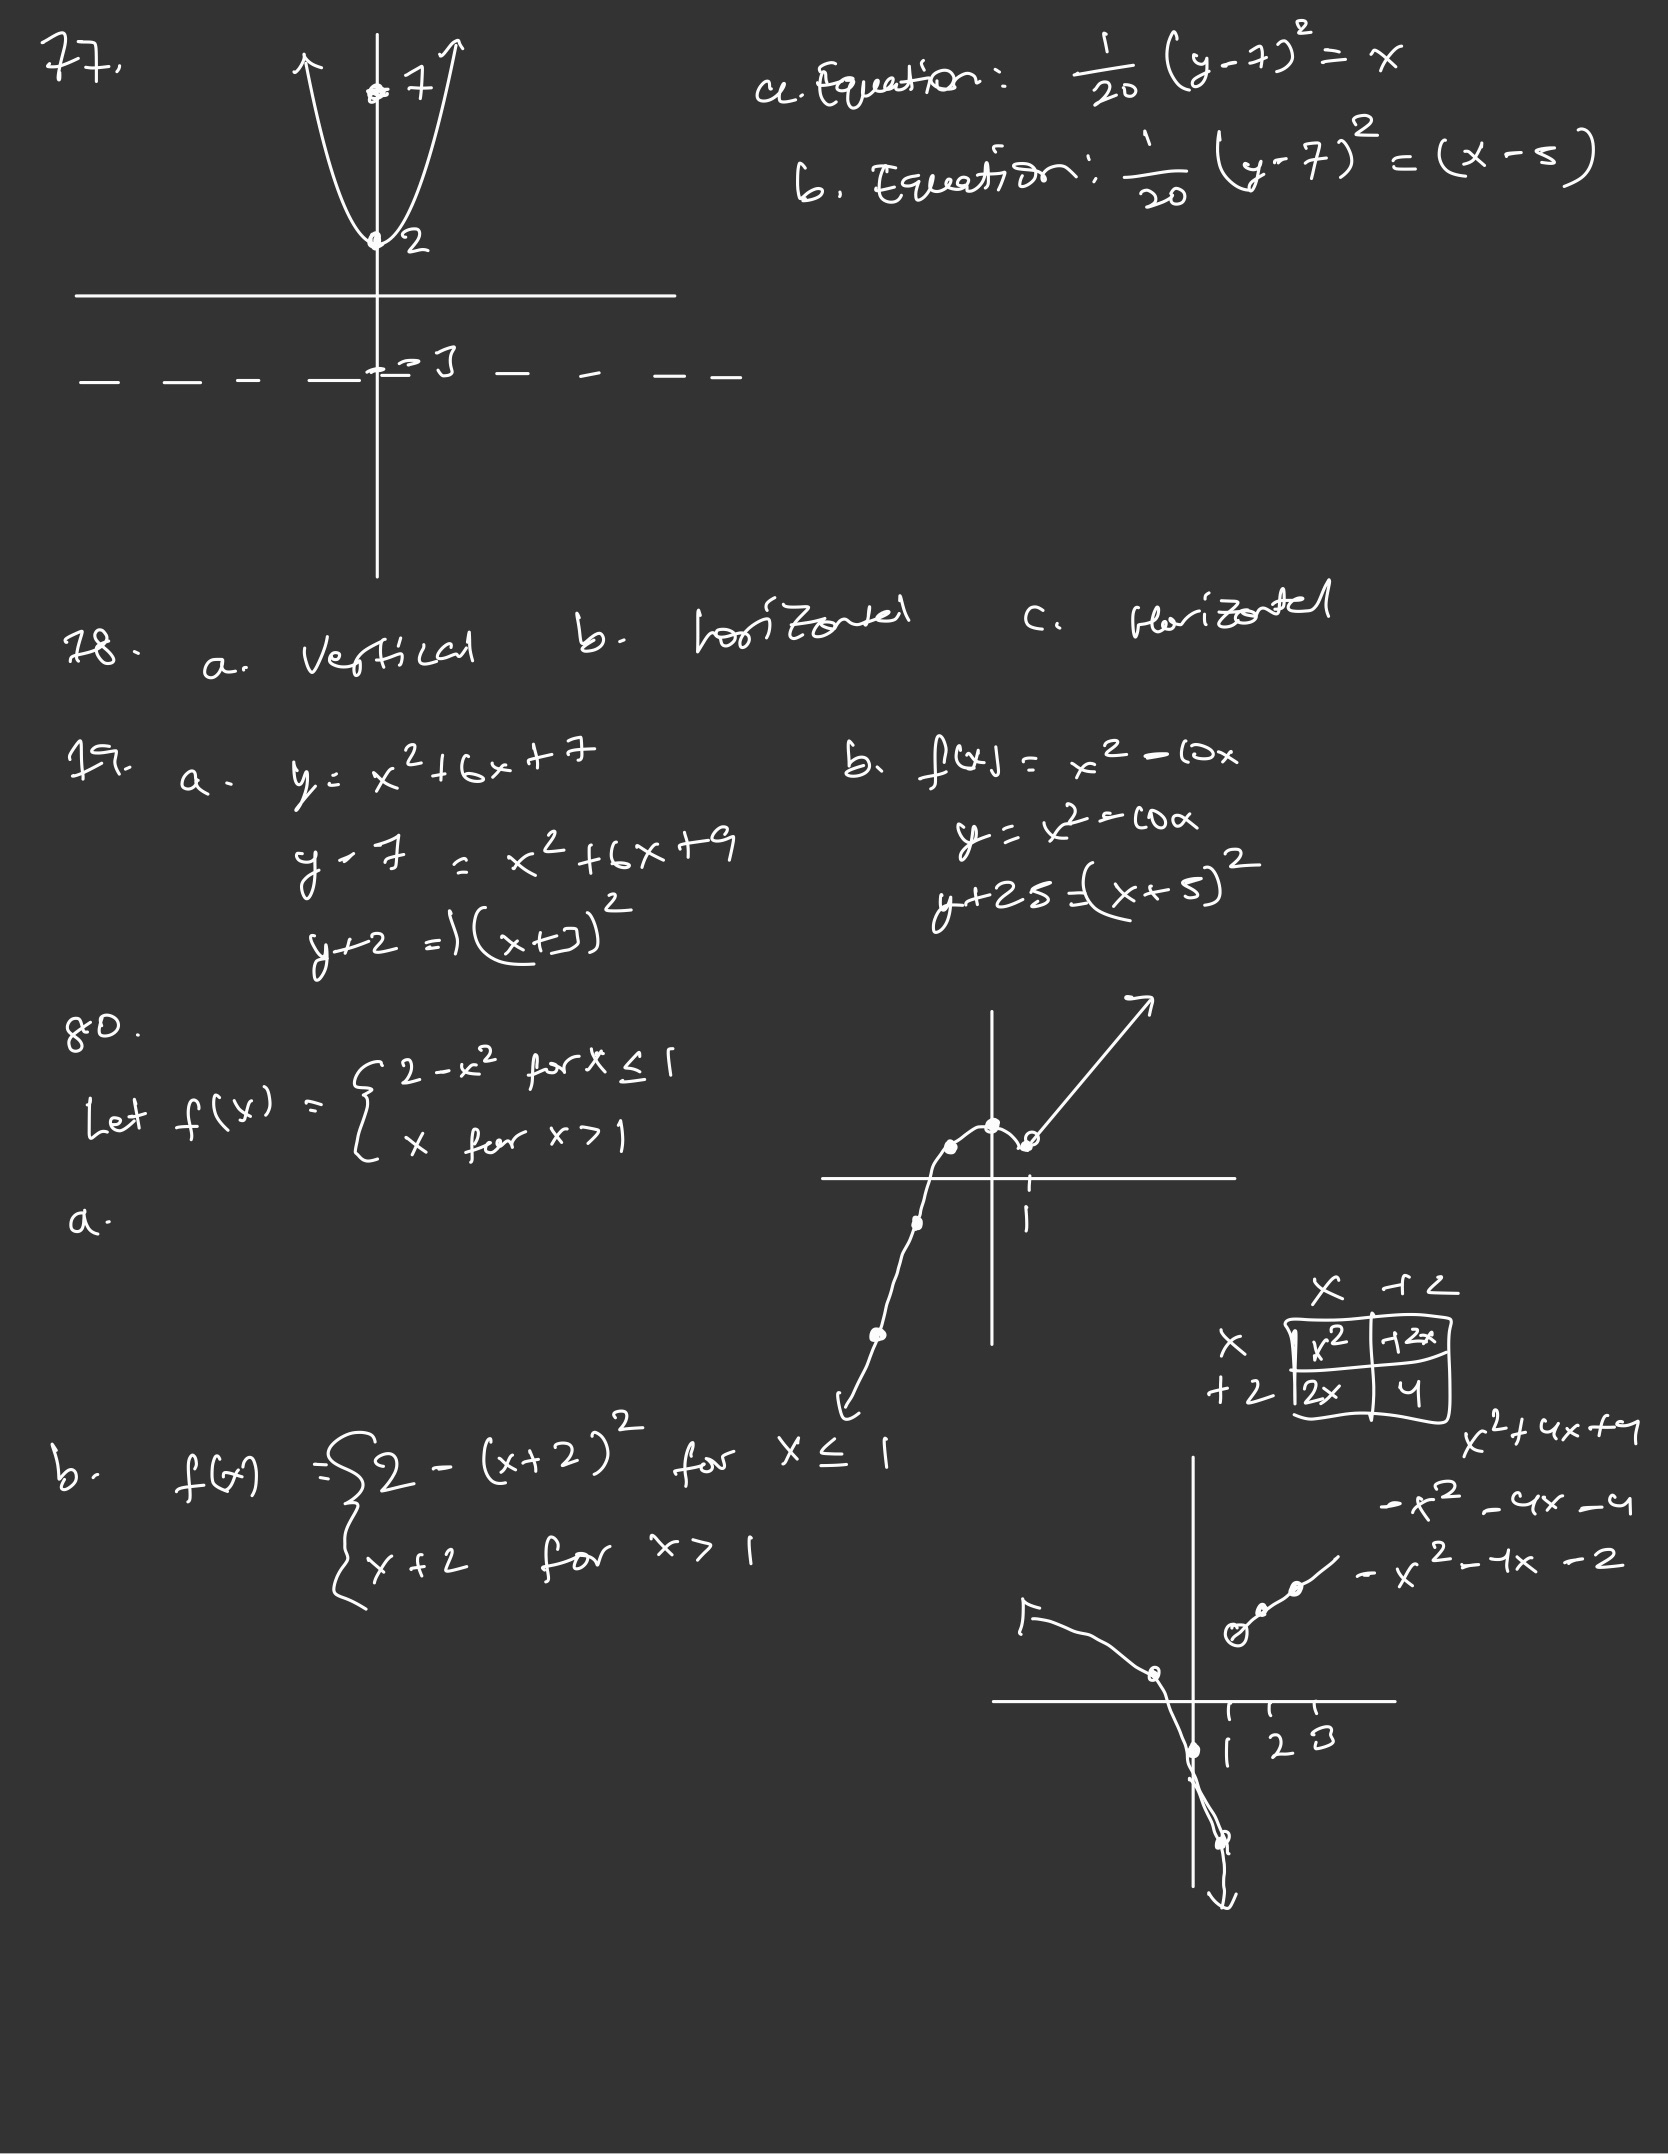 77.
7
2
-3
a. Equation: 1/20 (y-7)² = x
b. Equation: 1/20 (y-7)² = (x-5)
78. a. Vertical b. horizontal c. Horizontal
79. a. y = x²+6x+7
y-7 = x²+6x+9
y+2 = 1(x+3)²
b. f(x) = x²-10x
y = x²-10x
y+25=(x+5)²
80.
Let f(x) = { 2-x² for x ≤ 1
x for x > 1
a.
1
x +2
x x² +2x
+2 2x 4
x²+4x+4
-x²-4x-4
-x²-4x-2
b. f(x) = { 2-(x+2)² for x ≤ 1
x+2 for x > 1
1 2 3